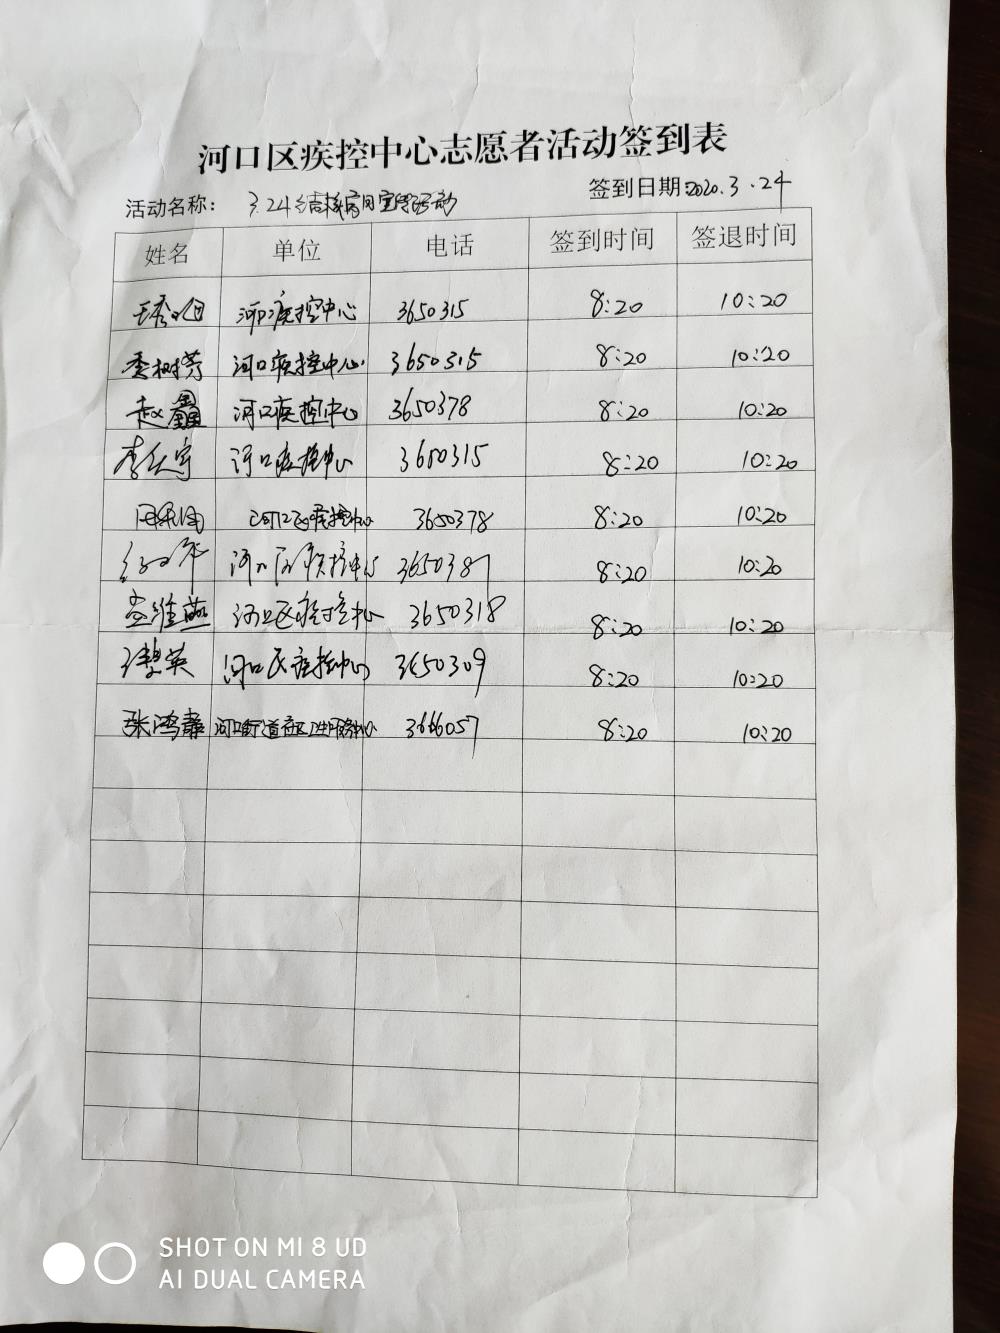 河口区疾控中心志愿者活动签到表
活动名称: 3.24结核病日宣传活动 签到日期:2020.3.24
姓名 单位 电话 签到时间 签退时间
河口疾控中心 3650315 8:20 10:20
李树芳 河口疾控中心 3650315 8:20 10:20
赵鑫 河口疾控中心 3650378 8:20 10:20
河口疾控中心 3650315 8:20 10:20
河口区疾控中心 3650378 8:20 10:20
河口区疾控中心 3650387 8:20 10:20
河口区疾控中心 3650318 8:20 10:20
河口区疾控中心 3650309 8:20 10:20
张鸿静 河口街道社区卫生服务中心 3666057 8:20 10:20
SHOT ON MI 8 UD
AI DUAL CAMERA